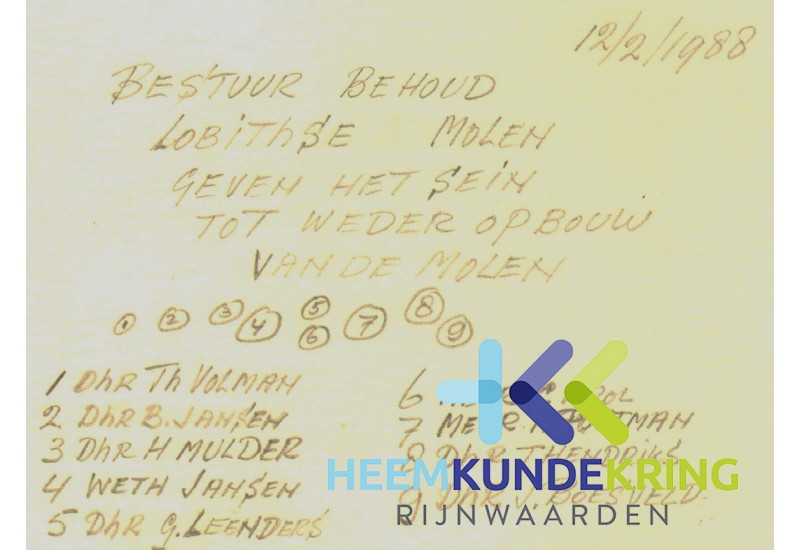 12/2/1988
BESTUUR BEHOUD
LOBITHSE MOLEN
GEVEN HET SEIN
TOT WEDER OPBOUW
VAN DE MOLEN
1 2 3 4 5 6 7 8 9
1 Dhr Th VOLMAN
2 Dhr B. JANSEN
3 Dhr H MULDER
4 WETH JANSEN
5 Dhr G. LEENDERS
6
7
8 Dhr T HENDRIKS
9 Dhr J. BOESVELD
HEEMKUNDEKRING
RIJNWAARDEN